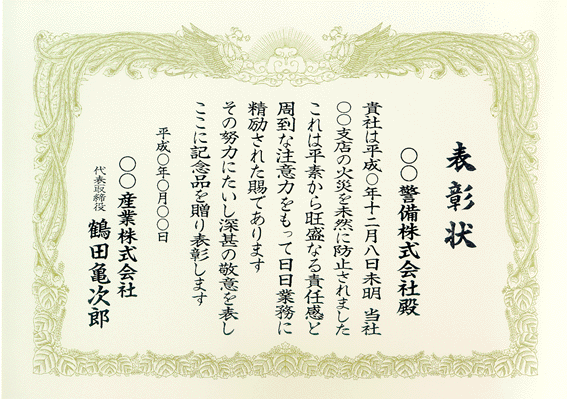 表彰状
〇〇警備株式会社殿
貴社は平成〇年十二月八日未明 当社
〇〇支店の火災を未然に防止されました
これは平素から旺盛なる責任感と
周到な注意力をもって日日業務に
精励された賜であります
その努力にたいし深甚の敬意を表し
ここに記念品を贈り表彰します
平成〇年〇月〇〇日
〇〇産業株式会社
代表取締役 鶴田亀次郎